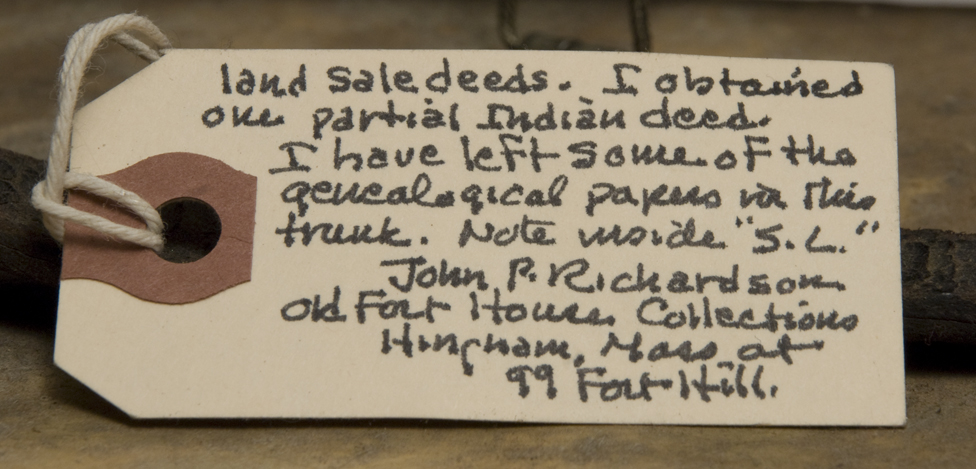 land sale deeds. I obtained
one partial Indian deed.
I have left some of the
genealogical papers in this
trunk. Note inside "S.L."
John P. Richardson
Old Fort House Collections
Hingham, Mass at
99 Fort Hill.